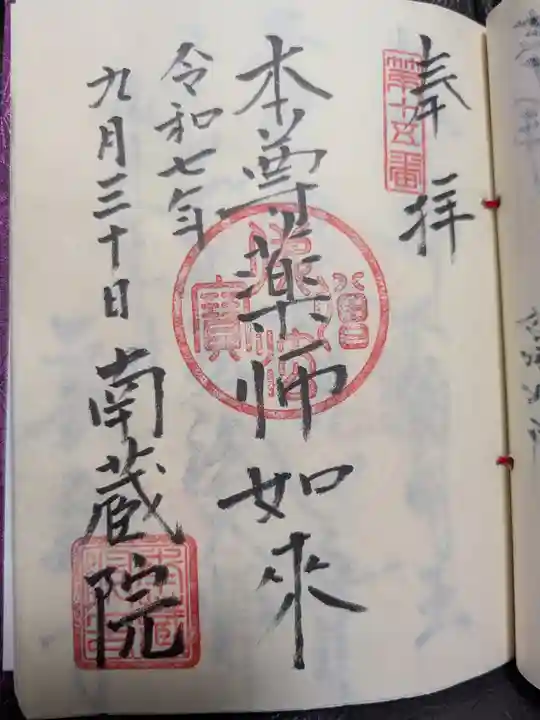 奉拝
第十五番
本尊薬师如来
佛法僧寳
令和七年
九月三十日
南蔵院